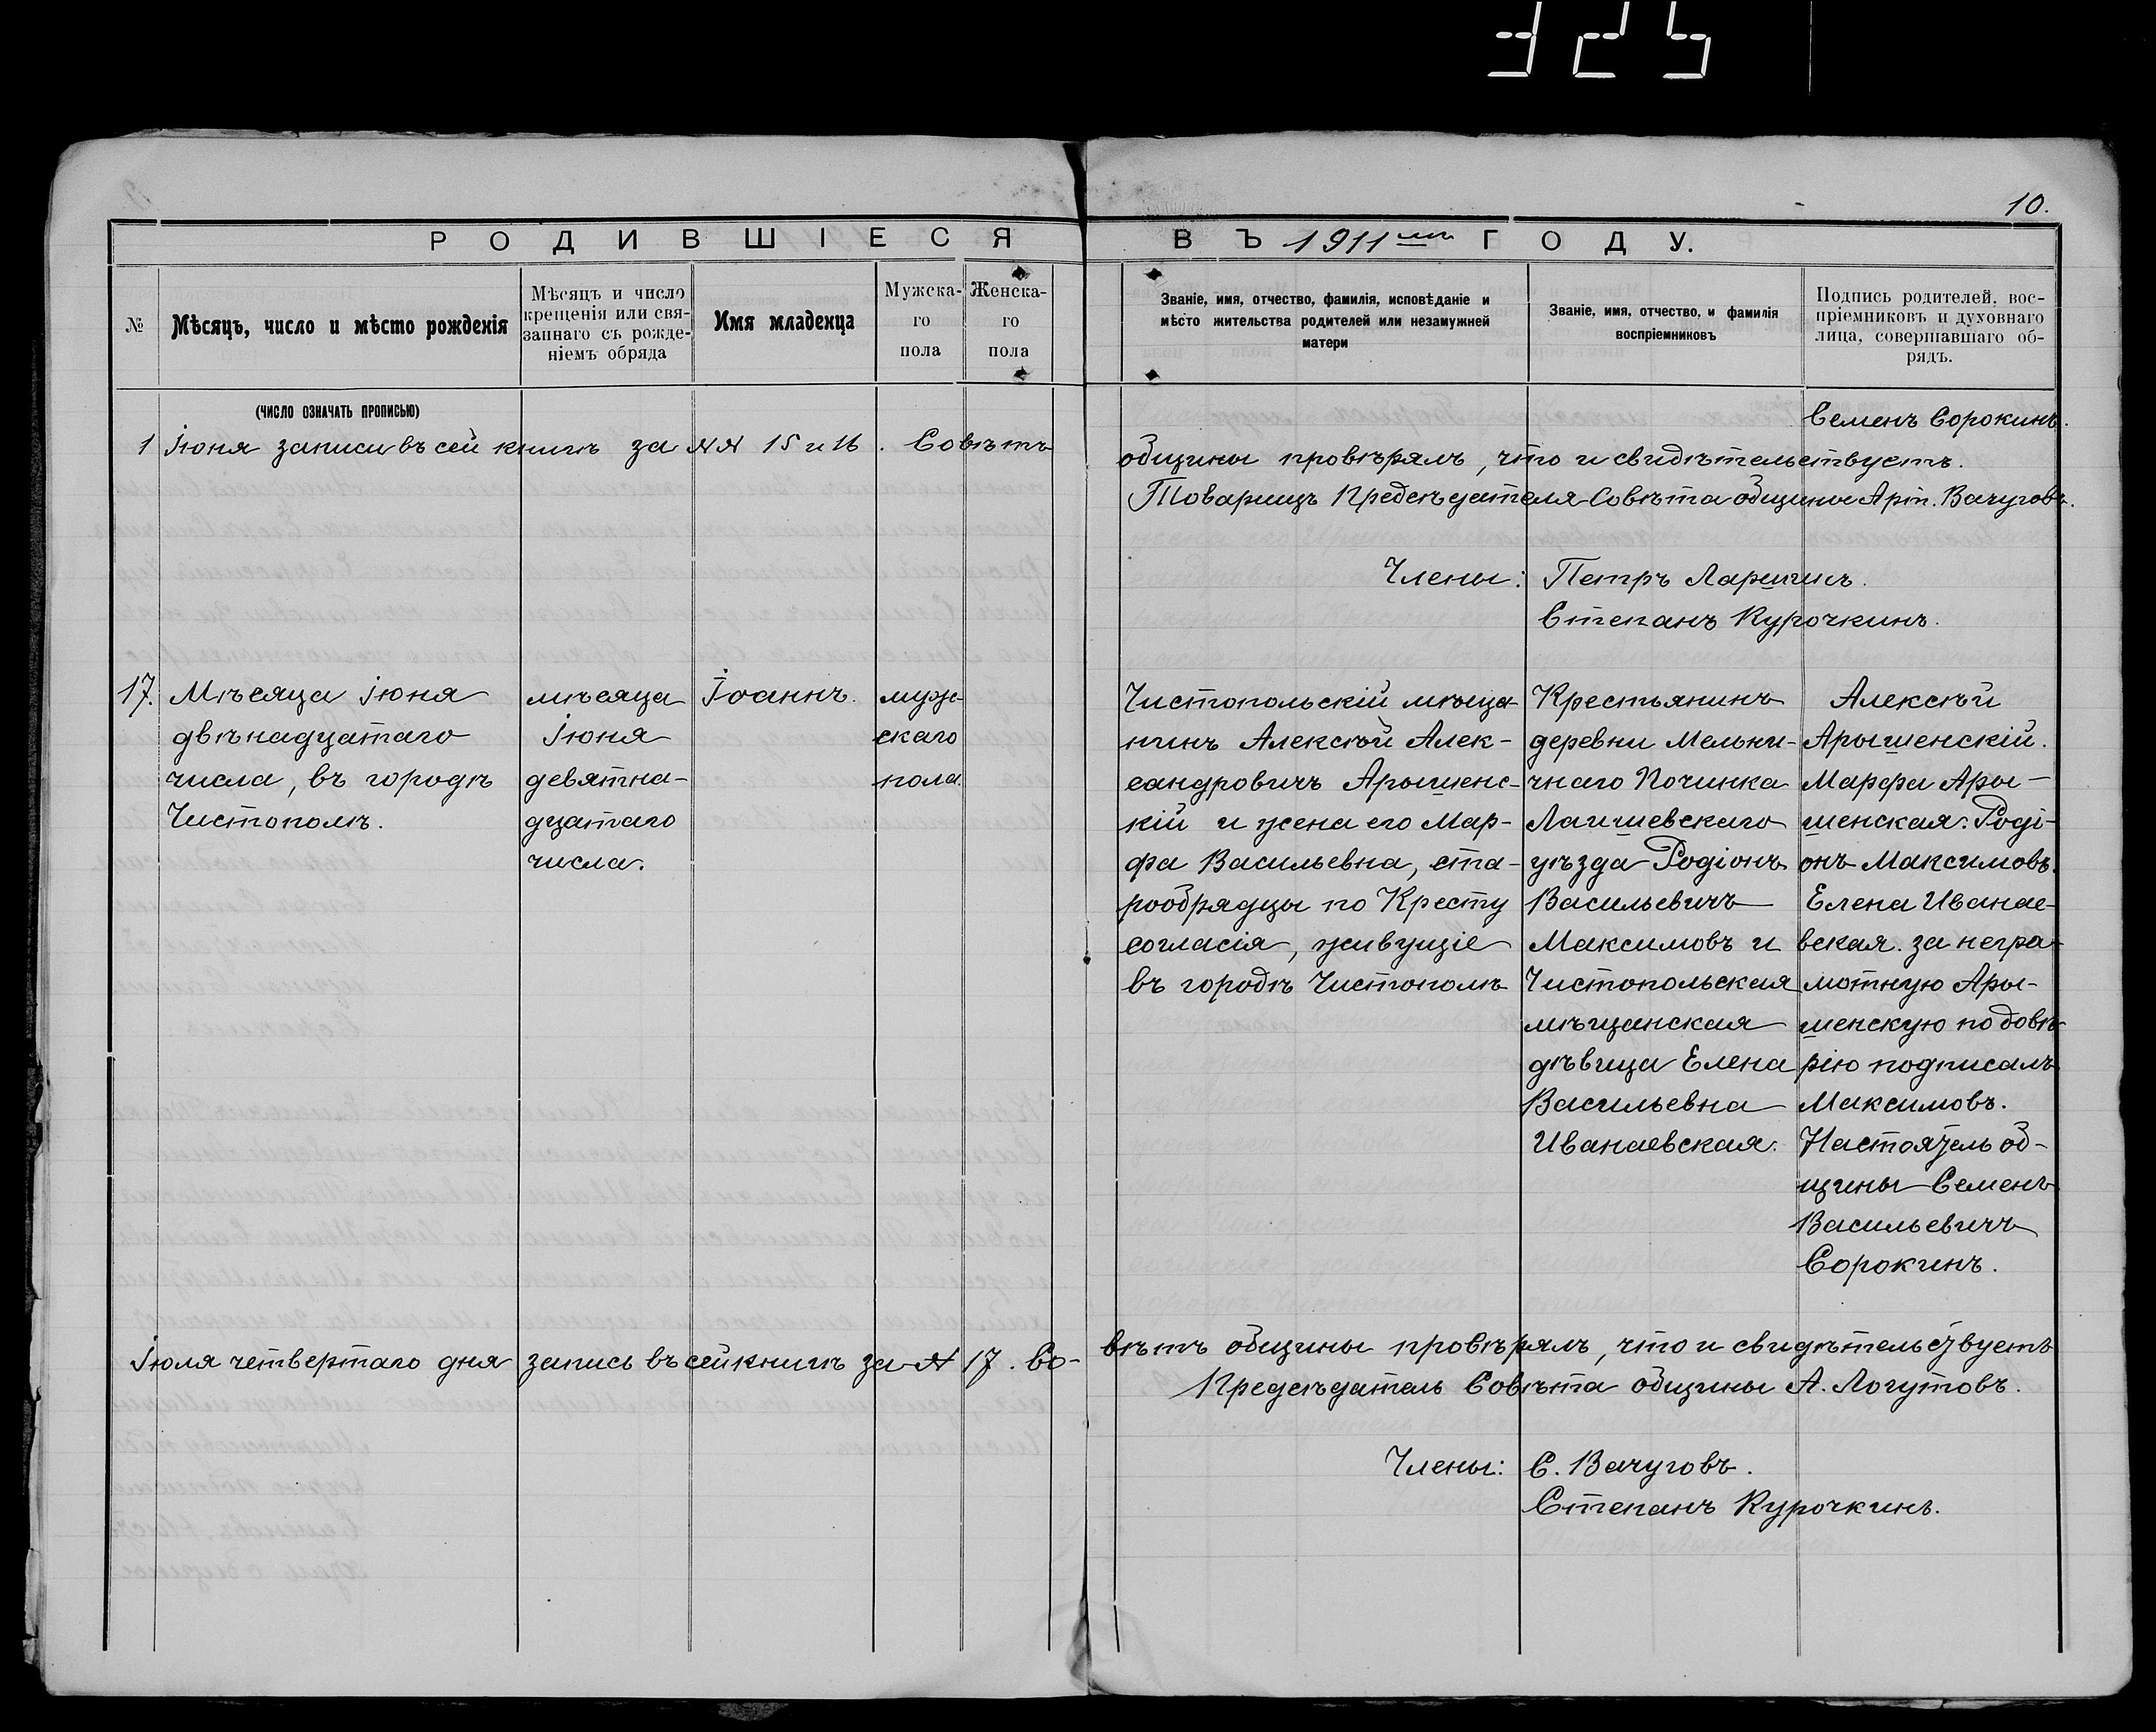 325
10.
РОДИВШІЕСЯ ВЪ 1911мъ ГОДУ.
№
Мѣсяцъ, число и мѣсто рожденія
Мѣсяцъ и число
крещенія или свя-
заннаго съ рожде-
ніемъ обряда
Имя младенца
Мужска-
го
пола
Женска-
го
пола
Званіе, имя, отчество, фамилія, исповѣданіе и
мѣсто жительства родителей или незамужней
матери
Званіе, имя, отчество, и фамилія
воспріемниковъ
Подпись родителей, вос-
пріемниковъ и духовнаго
лица, совершавшаго об-
рядъ.
(ЧИСЛО ОЗНАЧАТЬ ПРОПИСЬЮ)
Семенъ Сорокинъ.
1 Іюня записи въ сей книгѣ за №№ 15 и 16. Совѣтъ
общины провѣрялъ, что и свидѣтельствуетъ.
Товарищъ Предсѣдателя Совѣта общины Арт. Вачуговъ.
Члены: Петръ Ларшинъ.
Степанъ Курочкинъ.
17.
Мѣсяца Іюня
двѣнадцатаго
числа, въ городѣ
Чистополѣ.
мѣсяца
Іюня
девятна-
дцатаго
числа.
Іоаннъ.
муж-
скаго
пола.
Чистопольскій мѣща-
нинъ Алексѣй Алек-
сандровичъ Арышенс-
кій и жена его Мар-
фа Васильевна, ста-
рообрядцы по Кресту
согласія, живущіе
въ городѣ Чистополѣ
Крестьянинъ
деревни Мельни-
чнаго Починка
Лаишевскаго
уѣзда Родіонъ
Васильевичъ
Максимовъ и
Чистопольская
мѣщанская
дѣвица Елена
Васильевна
Иванаевская.
Алексѣй
Арышенскій.
Марфа Ары-
шенская. Роді-
онъ Максимовъ.
Елена Иванае-
вская. за негра-
мотную Ары-
шенскую по довѣ-
рію подписалъ
Максимовъ.
Настоятель об-
щины Семенъ
Васильевичъ
Сорокинъ.
Іюля четвертаго дня запись въ сей книгѣ за № 17. Со-
вѣтъ общины провѣрялъ, что и свидѣтельствуетъ
Предсѣдатель Совѣта общины А. Логутовъ.
Члены: С. Вачуговъ.
Степанъ Курочкинъ.